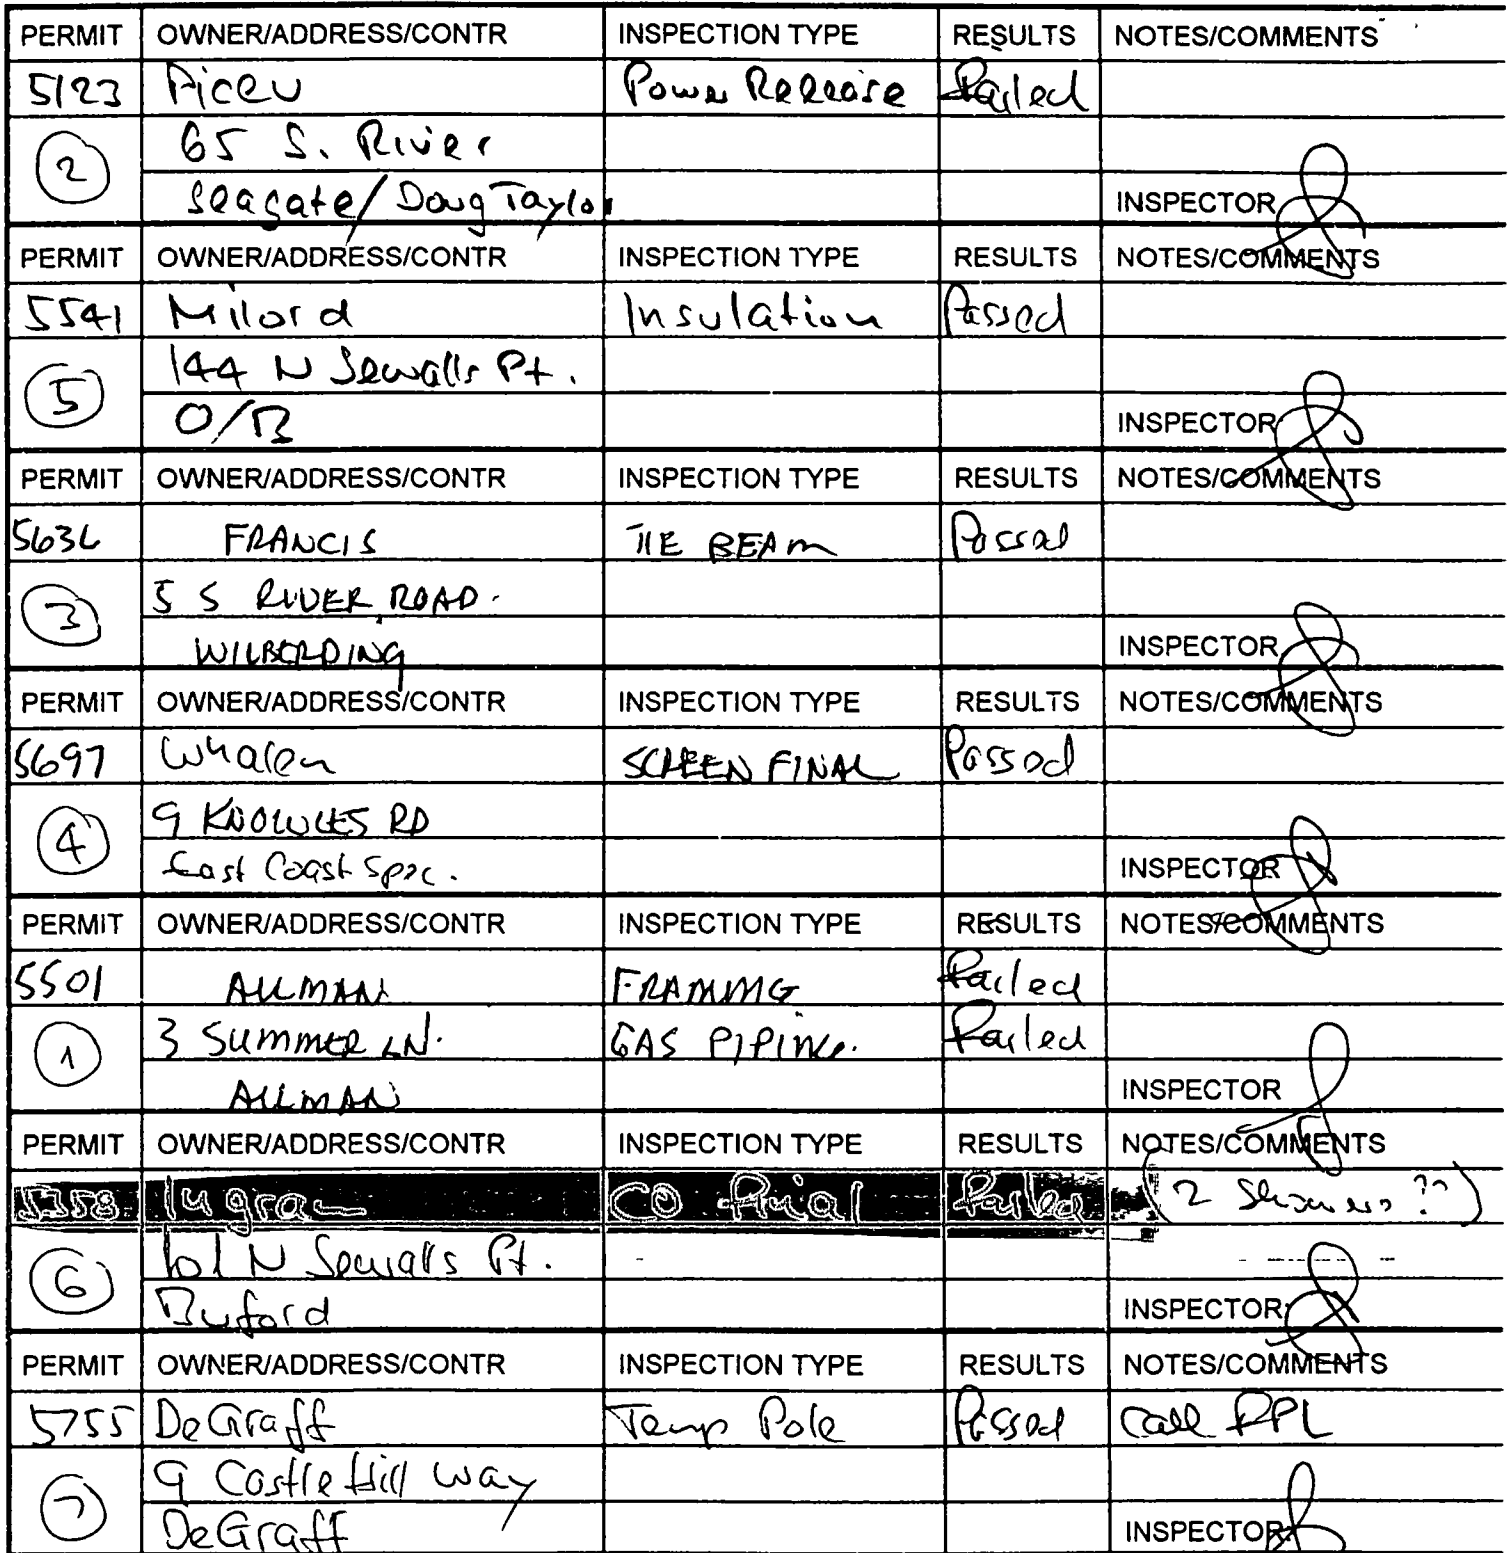 PERMIT OWNER/ADDRESS/CONTR INSPECTION TYPE RESULTS NOTES/COMMENTS
5123 Ficeu Power Release Failed
2 65 S. River
Seagate/Doug Taylor INSPECTOR
PERMIT OWNER/ADDRESS/CONTR INSPECTION TYPE RESULTS NOTES/COMMENTS
5541 Milord Insulation Passed
5 144 N Sewalls Pt.
O/B INSPECTOR
PERMIT OWNER/ADDRESS/CONTR INSPECTION TYPE RESULTS NOTES/COMMENTS
5636 FRANCIS TIE BEAM Passed
3 5 S RIVER ROAD.
WILBERDING INSPECTOR
PERMIT OWNER/ADDRESS/CONTR INSPECTION TYPE RESULTS NOTES/COMMENTS
5697 Whalen SCREEN FINAL Passed
4 9 KNOWLES RD
East Coast Spec. INSPECTOR
PERMIT OWNER/ADDRESS/CONTR INSPECTION TYPE RESULTS NOTES/COMMENTS
5501 ALLMAN FRAMING Failed
1 3 SUMMER LN. GAS PIPING. Failed
ALLMAN INSPECTOR
PERMIT OWNER/ADDRESS/CONTR INSPECTION TYPE RESULTS NOTES/COMMENTS
5358 Ingram CO Final Failed (2 Showers ??)
6 101 N Sewalls Pt.
Buford INSPECTOR
PERMIT OWNER/ADDRESS/CONTR INSPECTION TYPE RESULTS NOTES/COMMENTS
5755 DeGraff Temp Pole Passed Call FPL
7 9 Castle Hill Way
DeGraff INSPECTOR